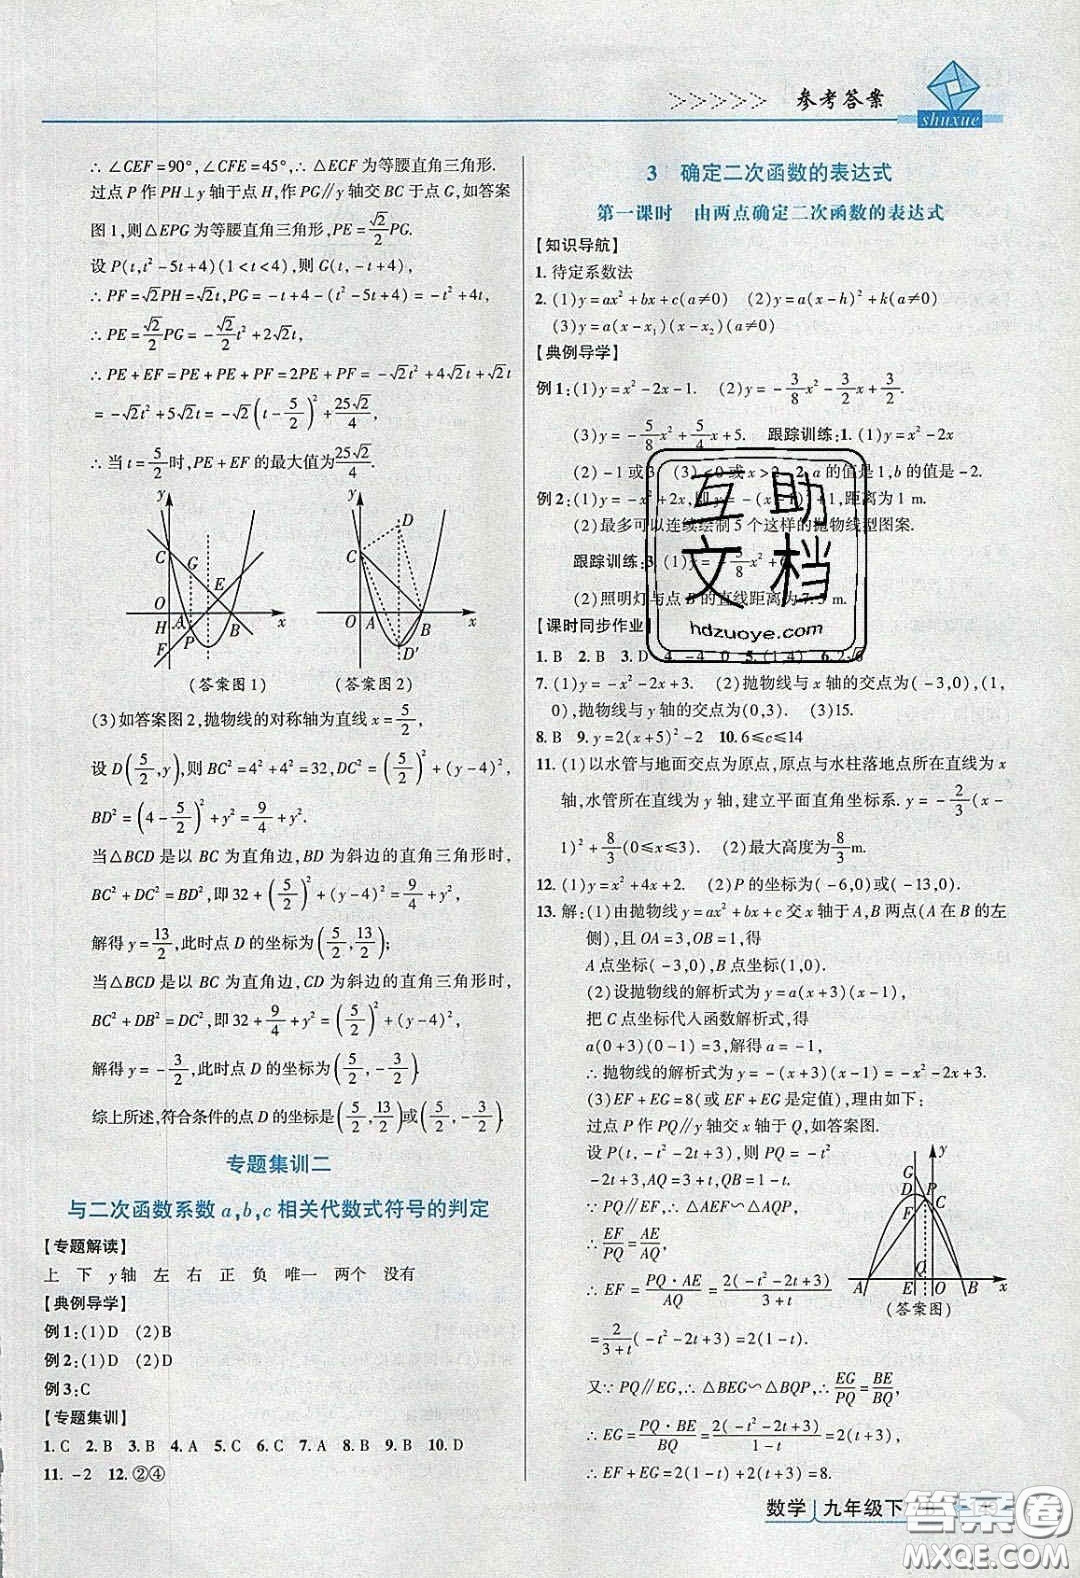 >>>>> 参考答案
shuxue
∴ ∠CEF=90°,∠CFE=45°,∴ △ECF 为等腰直角三角形.
过点 P 作 PH⊥y 轴于点 H,作 PG∥y 轴交 BC 于点 G,如答案
图 1,则△EPG 为等腰直角三角形,PE=√2/2PG.
设 P(t,t²-5t+4)(1<t<4),则 G(t,-t+4),
∴ PF=√2PH=√2t,PG=-t+4-(t²-5t+4)=-t²+4t,
∴ PE=√2/2PG=-√2/2t²+2√2t,
∴ PE+EF=PE+PE+PF=2PE+PF=-√2t²+4√2t+√2t
=-√2t²+5√2t=-√2(t-5/2)²+25√2/4,
∴ 当 t=5/2时,PE+EF 的最大值为25√2/4.
y D
C G E
O A B x
H P
F
y D
C
O A B x
D′
(答案图 1) (答案图 2)
(3)如答案图 2,抛物线的对称轴为直线 x=5/2,
设 D(5/2,y),则 BC²=4²+4²=32,DC²=(5/2)²+(y-4)²,
BD²=(4-5/2)²+y²=9/4+y².
当△BCD 是以 BC 为直角边,BD 为斜边的直角三角形时,
BC²+DC²=BD²,即 32+(5/2)²+(y-4)²=9/4+y²,
解得 y=13/2,此时点 D 的坐标为(5/2,13/2);
当△BCD 是以 BC 为直角边,CD 为斜边的直角三角形时,
BC²+DB²=DC²,即 32+9/4+y²=(5/2)²+(y-4)²,
解得 y=-3/2,此时点 D 的坐标为(5/2,-3/2)
综上所述,符合条件的点 D 的坐标是(5/2,13/2)或(5/2,-3/2).
专题集训二
与二次函数系数 a,b,c 相关代数式符号的判定
【专题解读】
上 下 y轴 左 右 正 负 唯一 两个 没有
【典例导学】
例 1:(1)D (2)B
例 2:(1)D (2)D
例 3:C
【专题集训】
1. C 2. B 3. B 4. A 5. C 6. C 7. A 8. B 9. B 10. D
11. -2 12. ②④
3 确定二次函数的表达式
第一课时 由两点确定二次函数的表达式
【知识导航】
1. 待定系数法
2. (1)y=ax²+bx+c(a≠0) (2)y=a(x-h)²+k(a≠0)
(3)y=a(x-x₁)(x-x₂)(a≠0)
【典例导学】
例 1:(1)y=x²-2x-1. (2)y=-3/8x²-3/4x+3/2.
(3)y=-5/8x²+5/4x+5. 跟踪训练:1. (1)y=x²-2x
(2)-1或3 (3)<0 或 x>2 2. a 的值是 1,b 的值是-2.
例 2:(1)y=-x²+2x,即 y=-(x-1)²+1,距离为 1 m.
(2)最多可以连续绘制 5 个这样的抛物线型图案.
跟踪训练:3. (1)y=-5/8x²+6
(2)照明灯与点 B 的直线距离为7.5 m.
【课时同步作业】
1. B 2. B 3. D 4. -4 0 5. (1,4) 6. 2√6
7. (1)y=-x²-2x+3. (2)抛物线与 x 轴的交点为(-3,0),(1,
0),抛物线与 y 轴的交点为(0,3). (3)15.
8. B 9. y=2(x+5)²-2 10. 6≤c≤14
11. (1)以水管与地面交点为原点,原点与水柱落地点所在直线为 x
轴,水管所在直线为 y 轴,建立平面直角坐标系. y=-2/3(x-
1)²+8/3(0≤x≤3). (2)最大高度为8/3m.
12. (1)y=x²+4x+2. (2)P 的坐标为(-6,0)或(-13,0).
13. 解:(1)由抛物线 y=ax²+bx+c 交 x 轴于 A,B 两点(A 在 B 的左
侧),且 OA=3,OB=1,得
A 点坐标(-3,0),B 点坐标(1,0).
(2)设抛物线的解析式为 y=a(x+3)(x-1),
把 C 点坐标代入函数解析式,得
a(0+3)(0-1)=3,解得 a=-1,
∴ 抛物线的解析式为 y=-(x+3)(x-1)=-x²-2x+3.
(3)EF+EG=8(或 EF+EG 是定值),理由如下:
过点 P 作 PQ∥y 轴交 x 轴于 Q,如答案图.
设 P(t,-t²-2t+3),则 PQ=-t²
-2t+3,AQ=3+t,QB=1-t.
∵ PQ∥EF,∴ △AEF∽△AQP,
∴ EF/PQ=AE/AQ,
∴ EF=PQ·AE/AQ=2(-t²-2t+3)/3+t
=2/3+t(-t²-2t+3)=2(1-t).
G y
D P
F C
Q
A E O B x
(答案图)
又∵ PQ∥EG,∴ △BEG∽△BQP,∴ EG/PQ=BE/BQ,
∴ EG=PQ·BE/BQ=2(-t²-2t+3)/1-t=2(t+3),
∴ EF+EG=2(1-t)+2(t+3)=8.
互助
文档
hdzuoye.com
数学 九年级下
答案圈
MXQE.COM